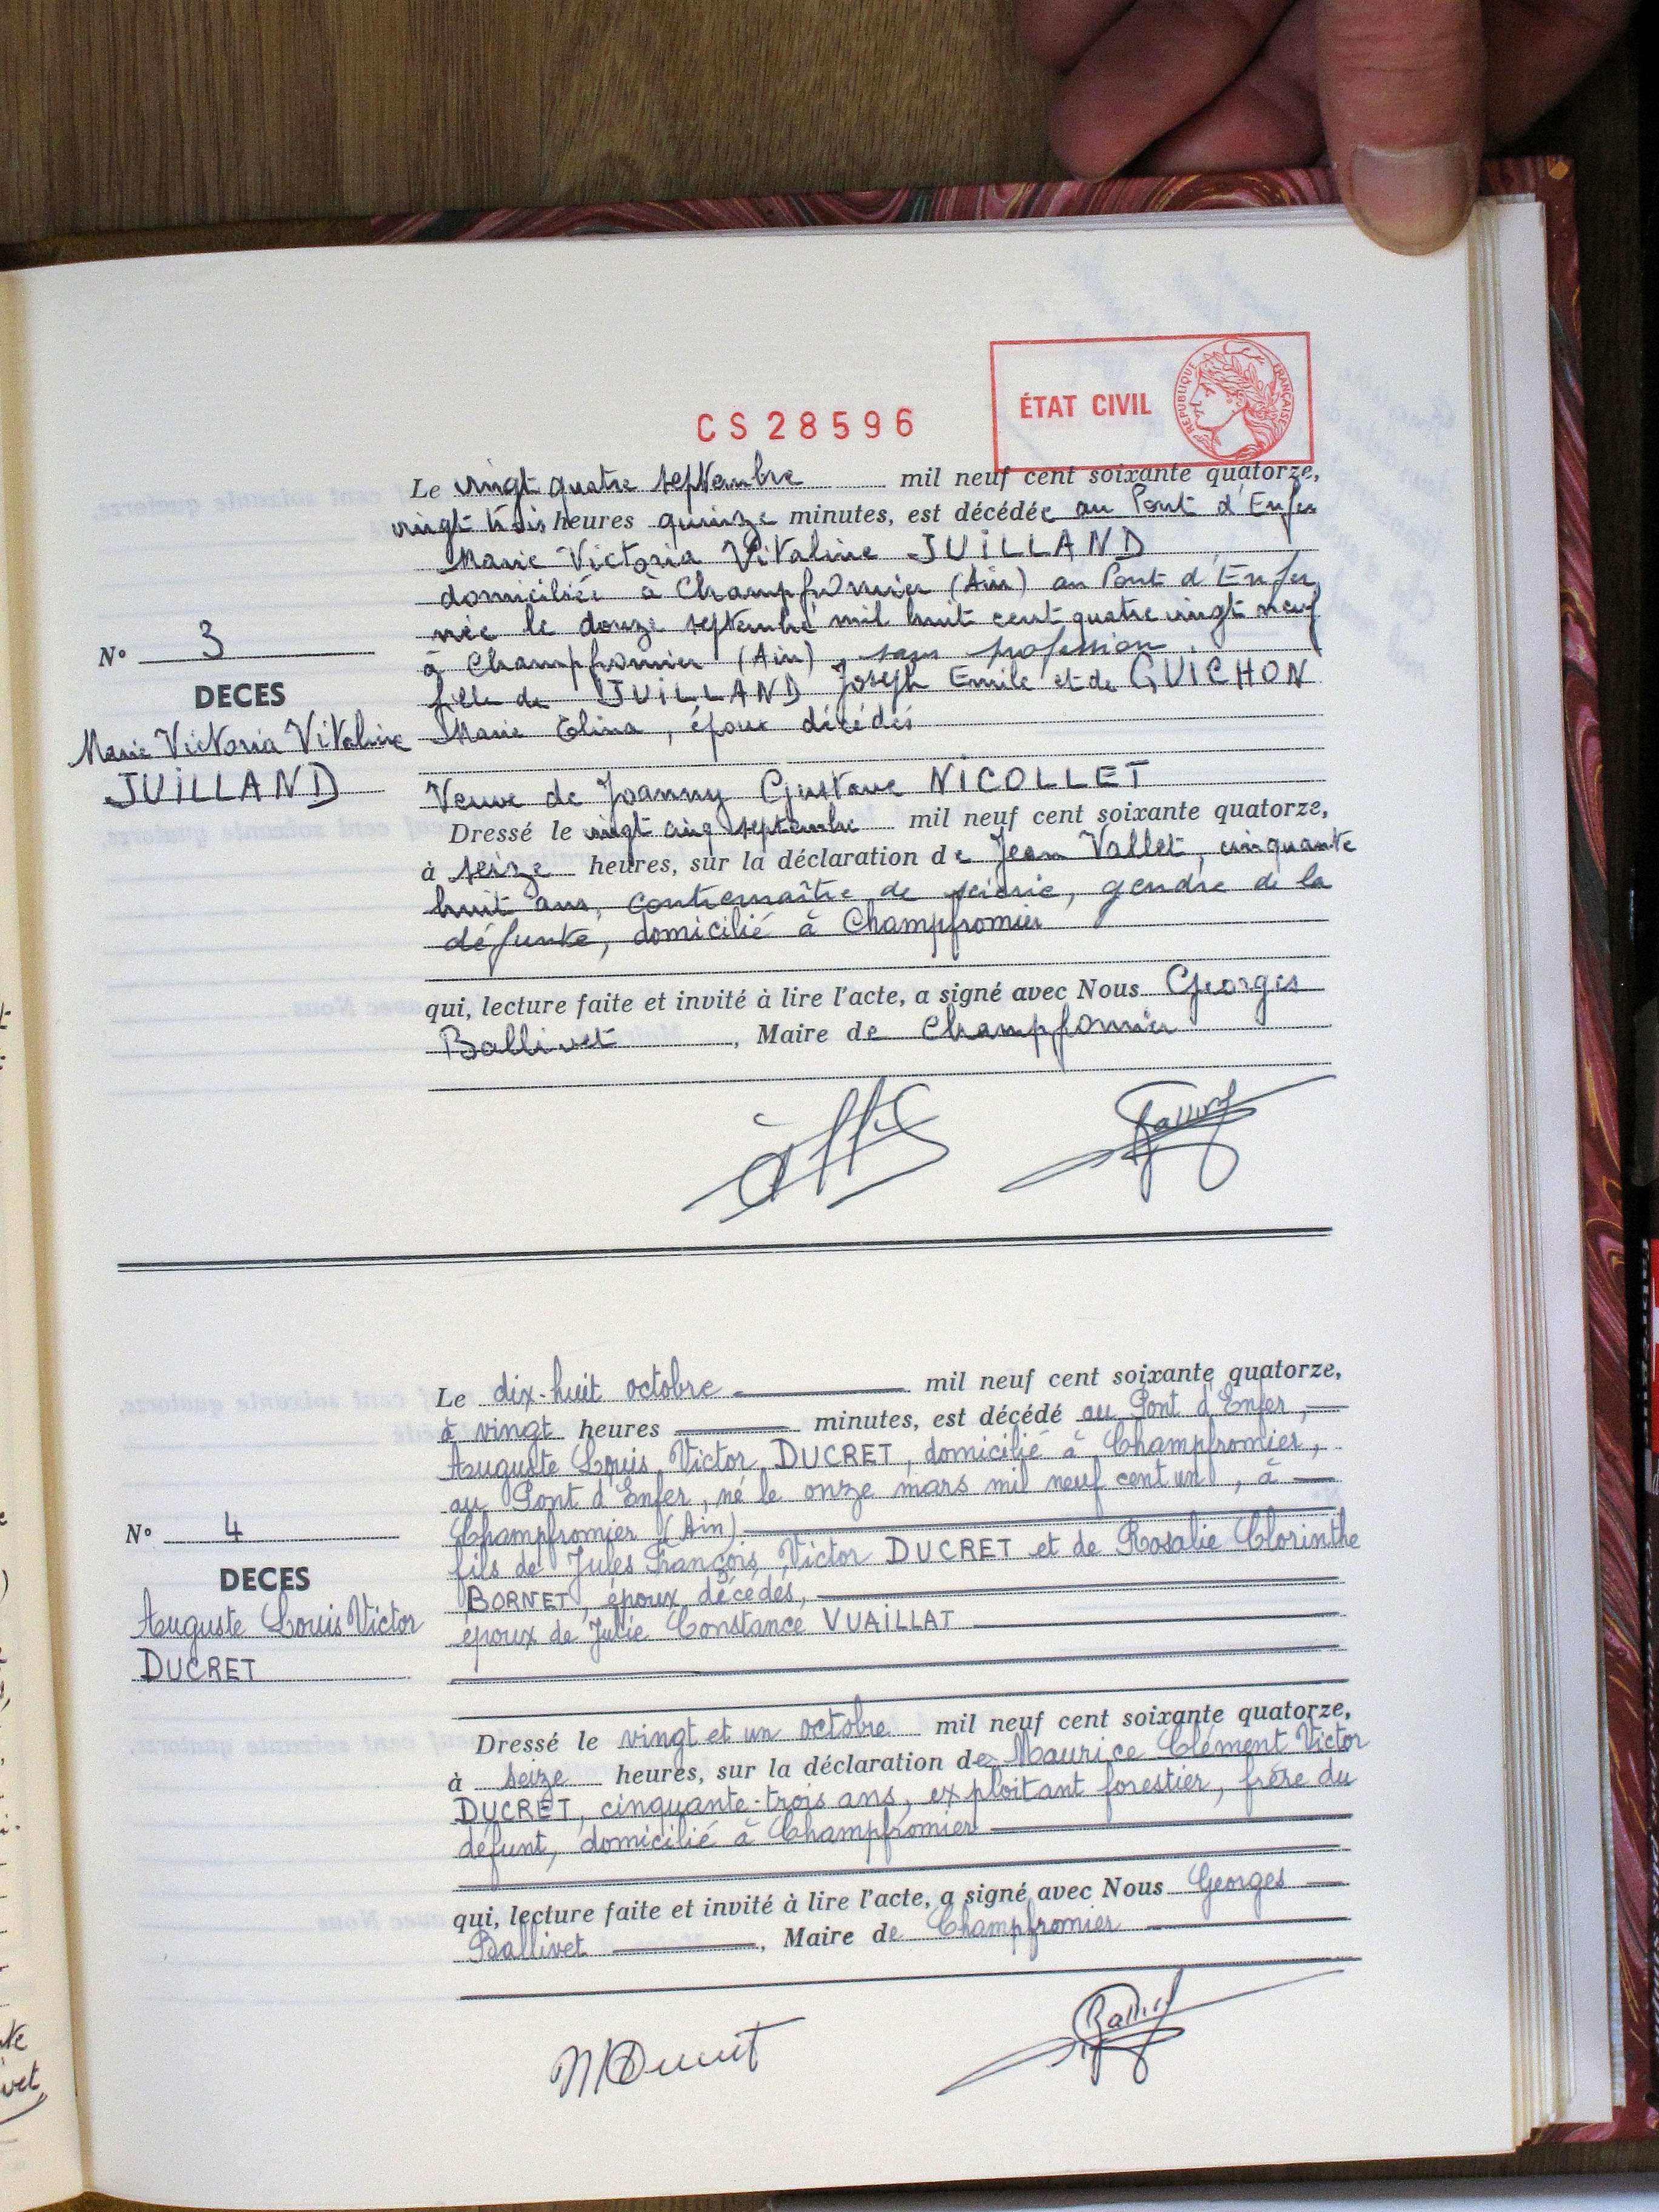 CS28596
ÉTAT CIVIL
RÉPUBLIQUE FRANÇAISE
Le vingt quatre septembre mil neuf cent soixante quatorze,
vingt trois heures quinze minutes, est décédée au Pont d'Enfer
Marie Victoria Vitaline JUILLAND
domiciliée à Champfromier (Ain) au Pont d'Enfer
née le douze septembre mil huit cent quatre vingt neuf
à Champfromier (Ain), sans profession,
fille de JUILLAND Joseph Emile et de GUICHON
Marie Elina, époux décédés
Veuve de Joanny Gustave NICOLLET
N° 3
DECES
Marie Victoria Vitaline
JUILLAND
Dressé le vingt cinq septembre mil neuf cent soixante quatorze,
à seize heures, sur la déclaration de Jean Vallet, cinquante
huit ans, contremaître de scierie, gendre de la
défunte, domicilié à Champfromier
qui, lecture faite et invité à lire l'acte, a signé avec Nous Georges
Ballivet, Maire de Champfromier
Le dix-huit octobre mil neuf cent soixante quatorze,
à vingt heures minutes, est décédé au Pont d'Enfer,
Auguste Louis Victor DUCRET, domicilié à Champfromier,
au Pont d'Enfer, né le onze mars mil neuf cent un, à
Champfromier (Ain)
fils de Jules François Victor DUCRET et de Rosalie Clorinthe
BORNET, époux décédés,
époux de Julie Constance VUAILLAT
N° 4
DECES
Auguste Louis Victor
DUCRET
Dressé le vingt et un octobre mil neuf cent soixante quatorze,
à seize heures, sur la déclaration de Maurice Clément Victor
DUCRET, cinquante-trois ans, exploitant forestier, frère du
défunt, domicilié à Champfromier
qui, lecture faite et invité à lire l'acte, a signé avec Nous Georges
Ballivet, Maire de Champfromier